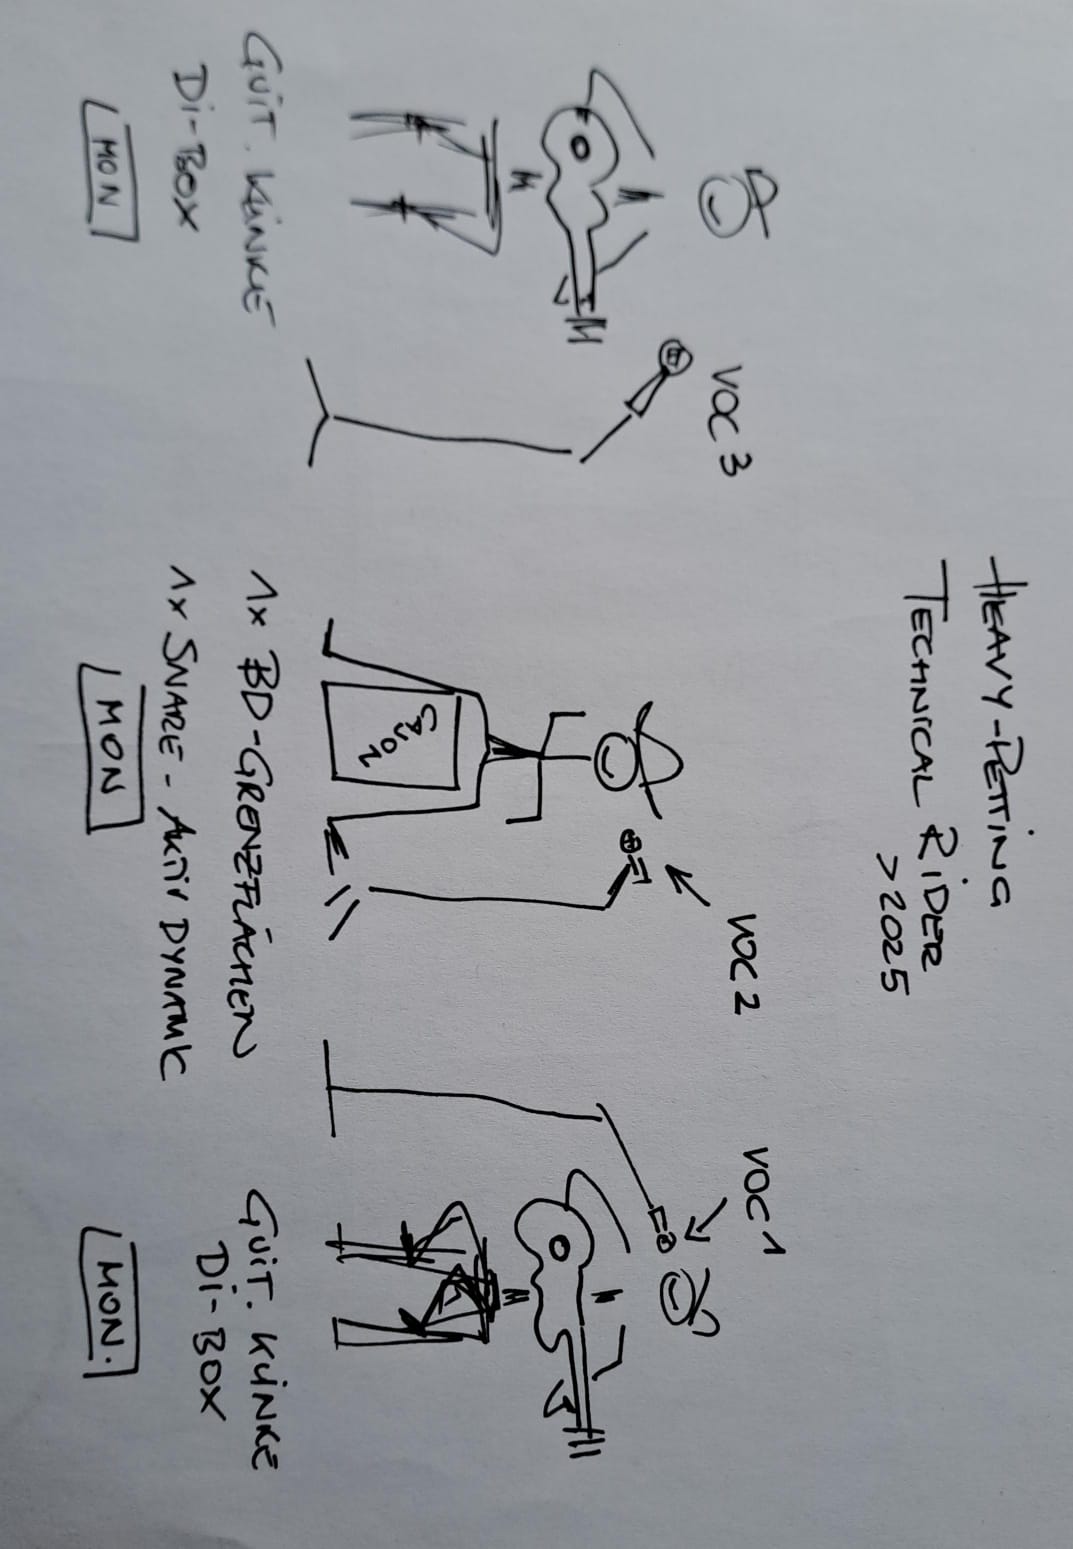 HEAVY-PETTING
TECHNICAL RIDER
>2025
VOC 3
VOC 2
VOC 1
CAJON
GUIT. KLINKE
DI-BOX
MON
1x BD-GRENZFLÄCHEN
1x SNARE - AKTIV DYNAMIC
MON
GUIT. KLINKE
DI-BOX
MON.